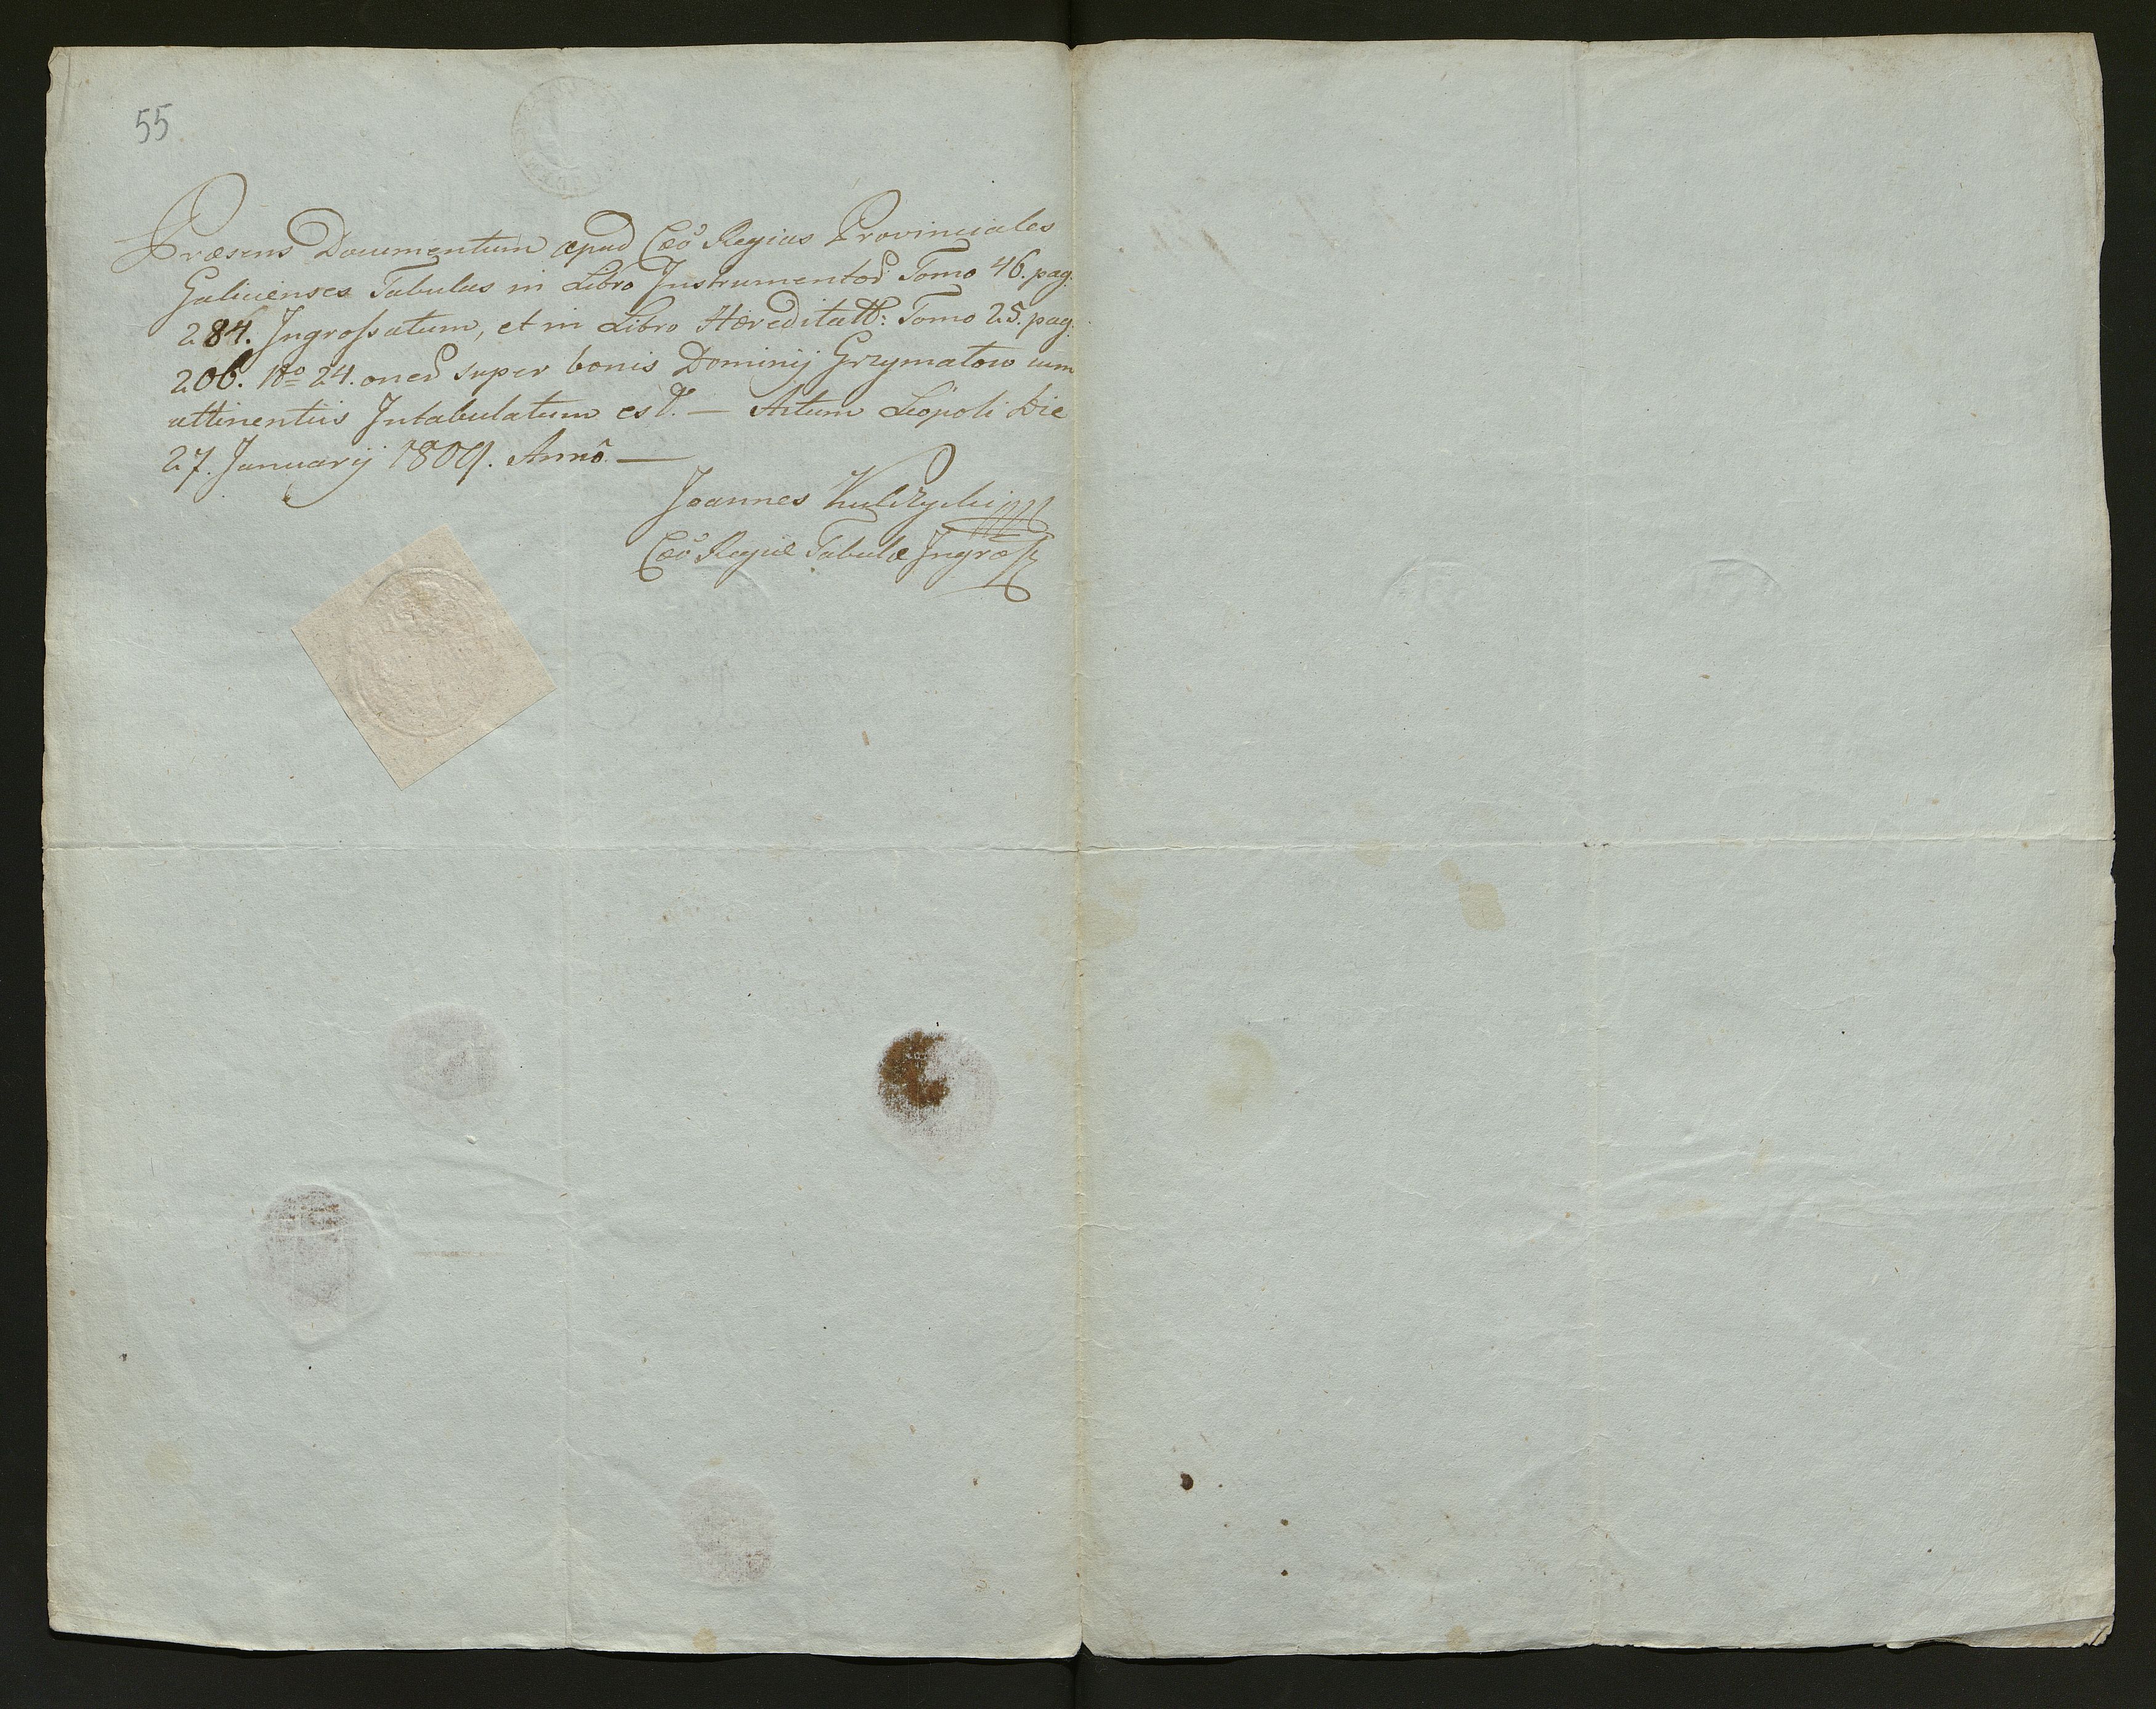 55
Præsens Documentum apud Cæs̄ Regias Provinciales
Galicienses Tabulas in Libro Instrumentor̄ Tomo 46. pag:
284. Ingrossatum, et in Libro Hæreditatt: Tomo 25. pag:
206. Nro 24. oner̄ super bonis Dominij Grzymałow cum
attinentiis Intabulatum est. — Actum Leopoli Die
27. Januarij 1809. Annō. —
Joannes Kulczycki
Cæs̄ Regiæ Tabulæ Ingross